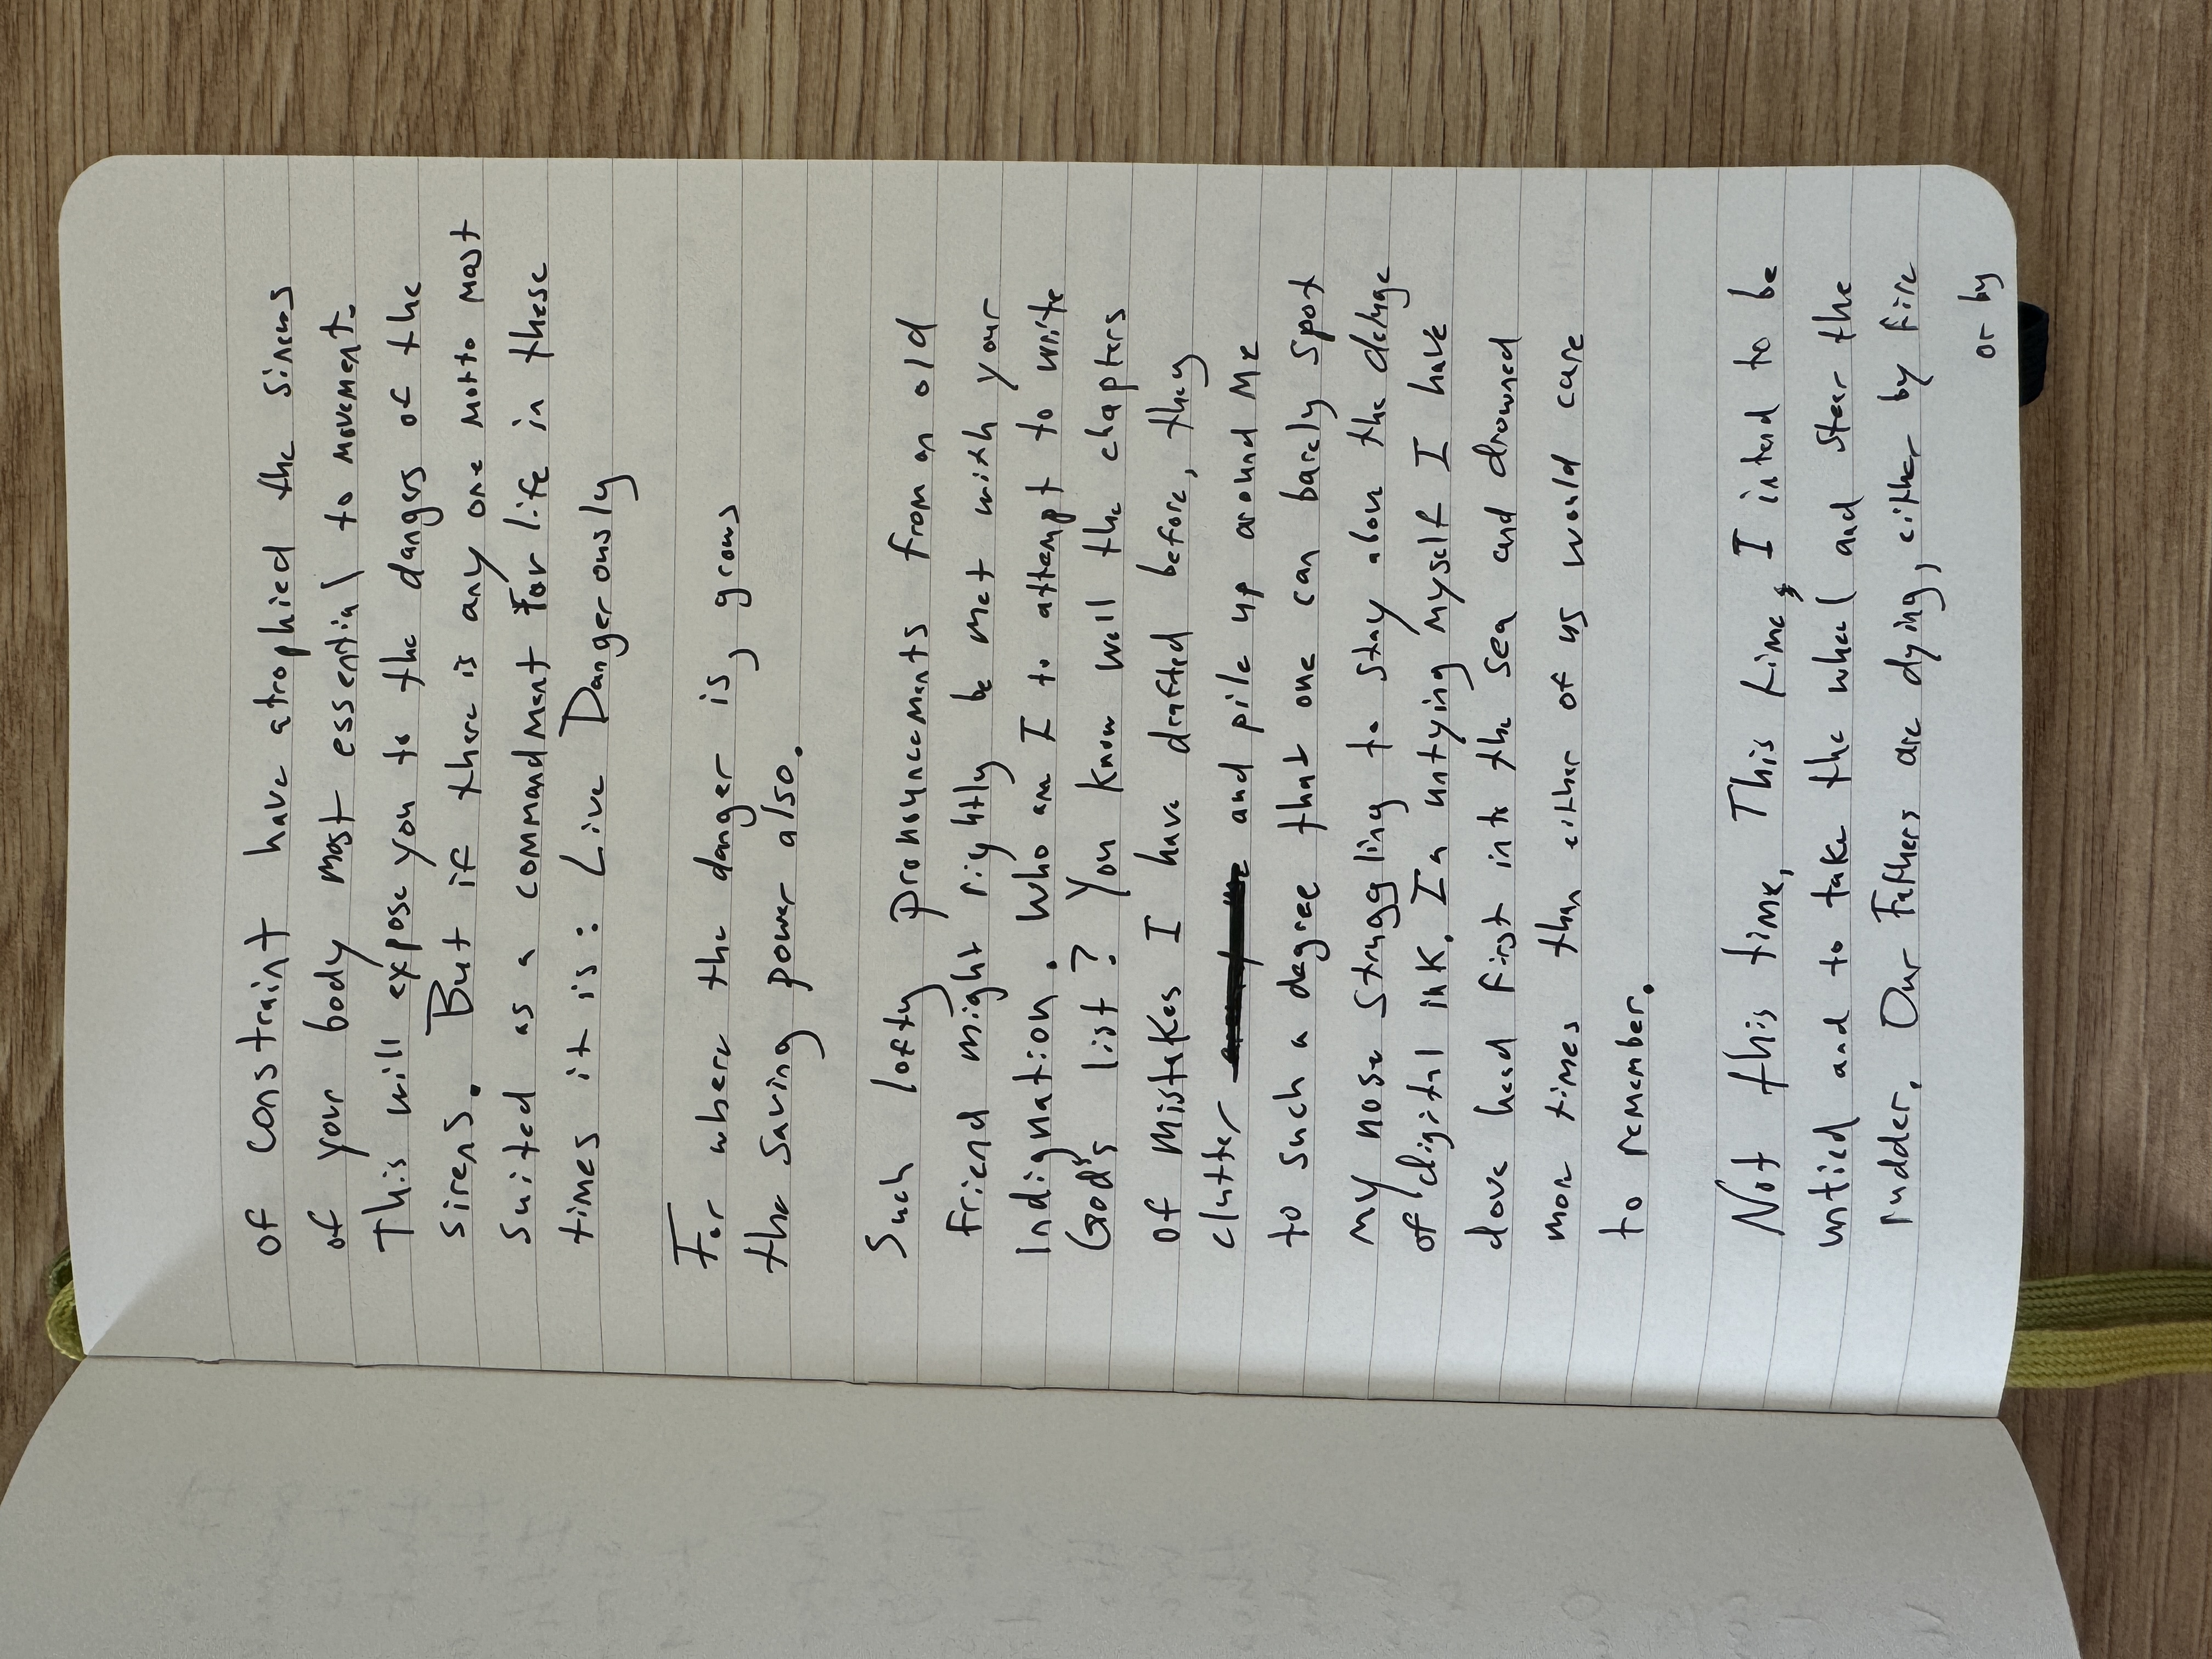 of constraint have atrophied the sinews
of your body most essential to movement.
This will expose you to the dangers of the
sirens. But if there is any one motto most
suited as a commandment for life in these
times it is: Live Dangerously
For where the danger is, grows
the saving power also.
Such lofty pronouncements from an old
friend might rightly be met with your
indignation. Who am I to attempt to write
God's list? You know well the chapters
of mistakes I have drafted before, they
clutter and pile up around me
to such a degree that one can barely spot
my nose struggling to stay above the deluge
of digital ink. In untying myself I have
dove head first into the sea and drowned
more times than either of us would care
to remember.
Not this time. This time, I intend to be
untied and to take the wheel and steer the
rudder. Our Fathers are dying, either by fire
or by